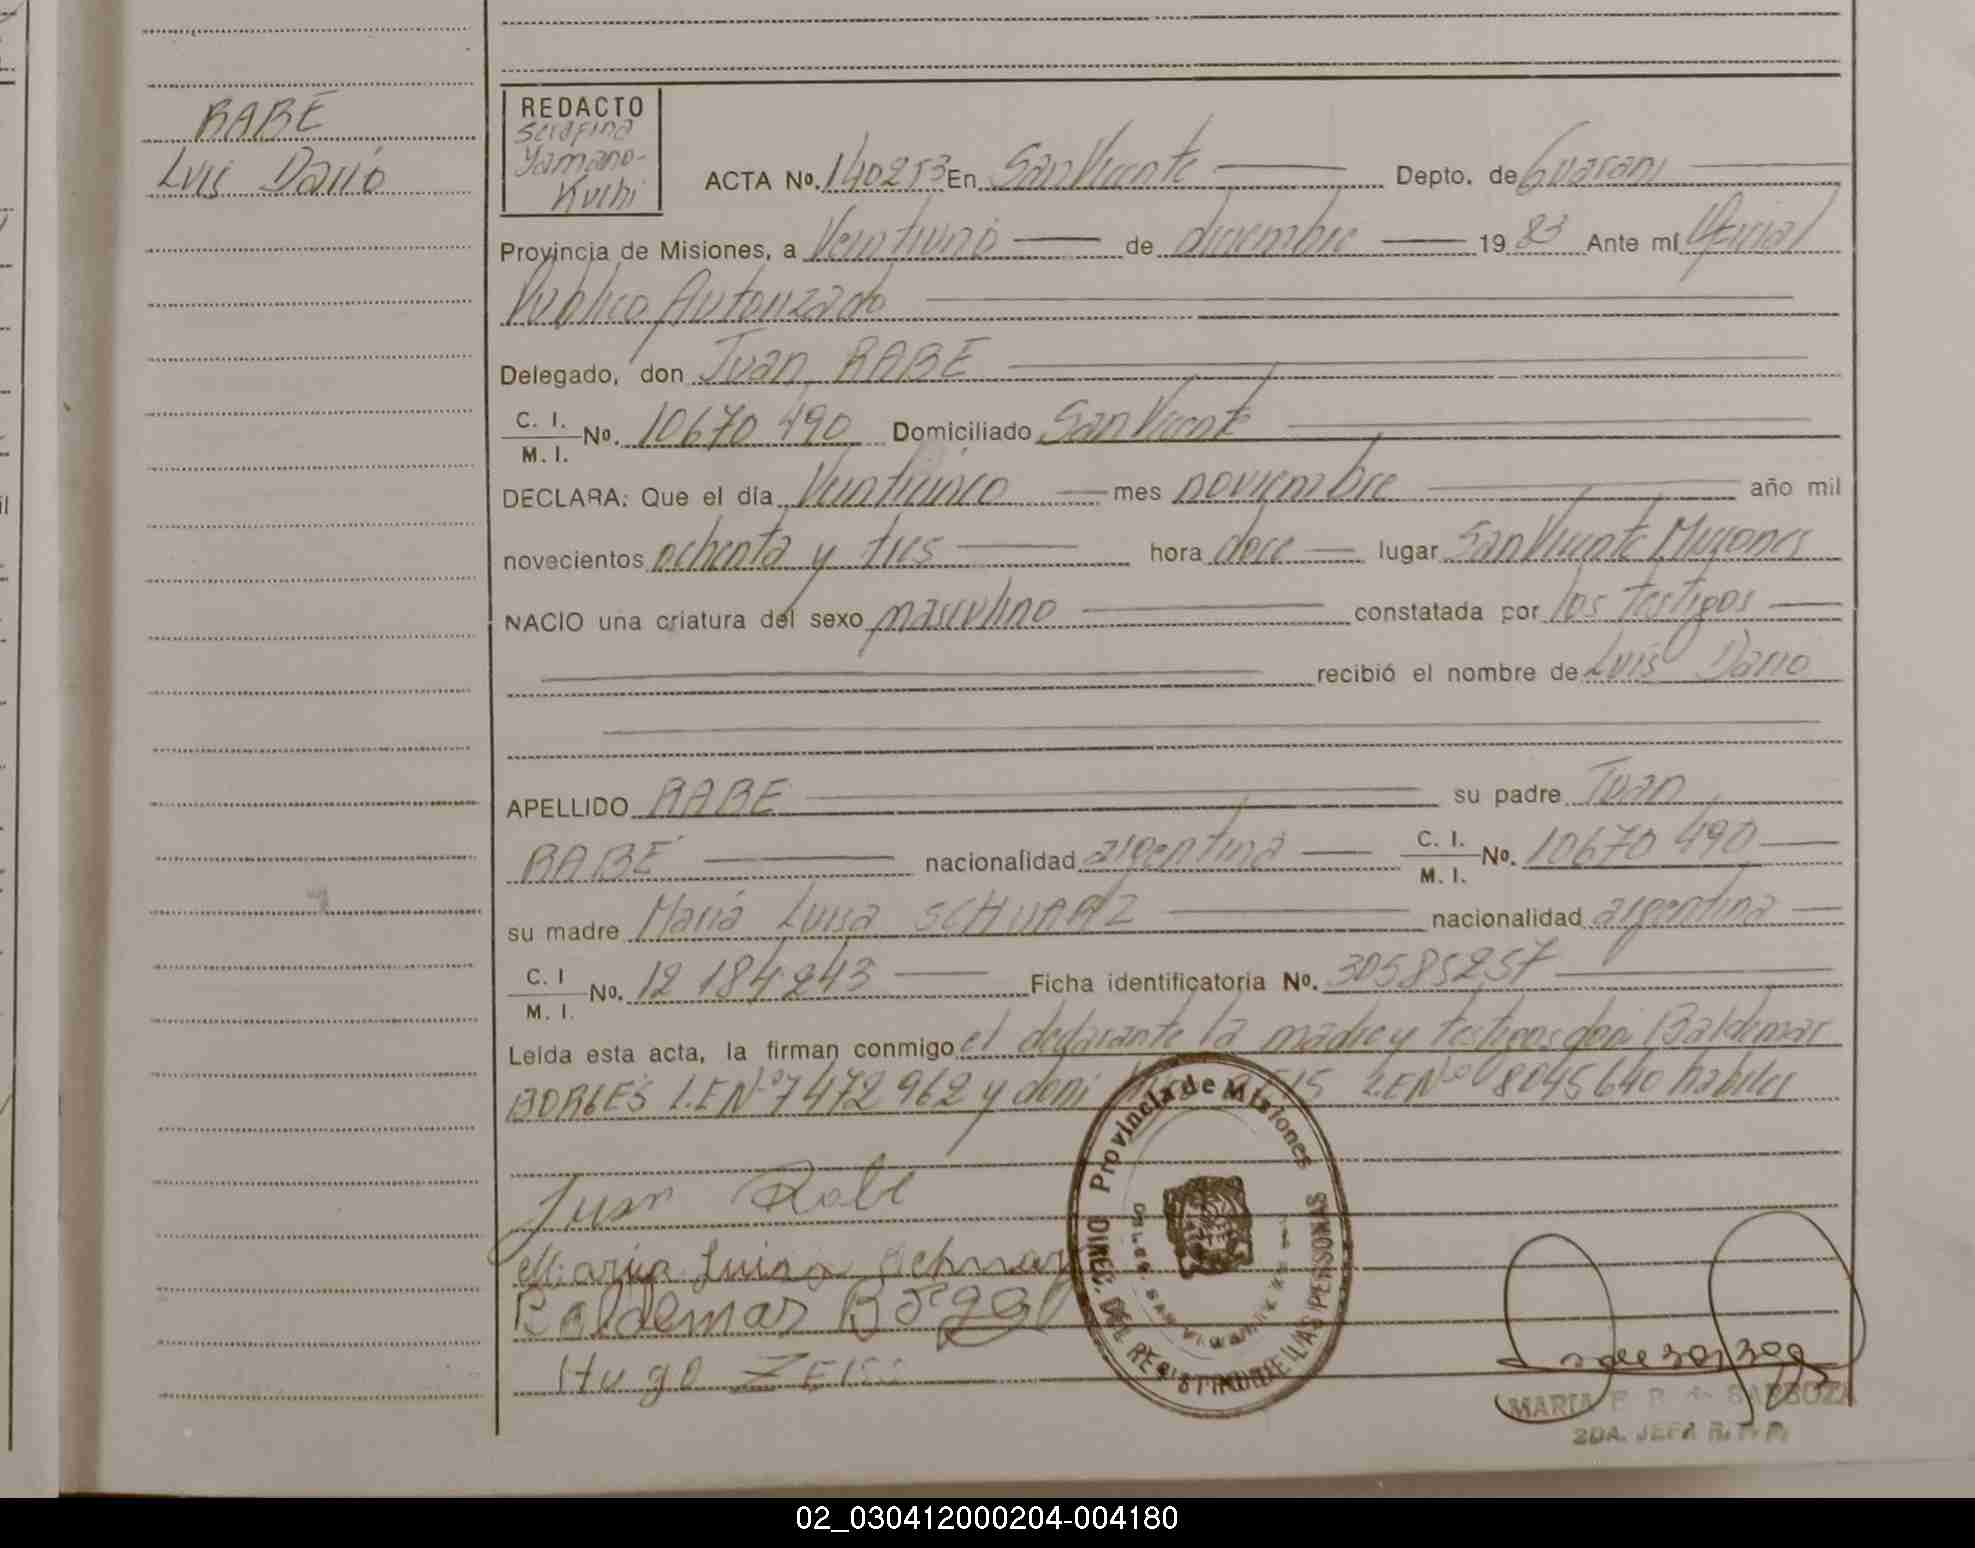 RABE
Luis Darío
REDACTO
Serafina
Yamano-
Kuchi
ACTA No. 140253 En San Vicente Depto. de Guaraní
Provincia de Misiones, a Veintiuno de diciembre 19 83 Ante mí Oficial
Público Autorizado
Delegado, don Juan RABE
C. I.
M. I. No. 10670 490 Domiciliado San Vicente
DECLARA: Que el día Veinticinco mes noviembre año mil
novecientos ochenta y tres hora doce lugar San Vicente Misiones
NACIO una criatura del sexo masculino constatada por los testigos
recibió el nombre de Luis Darío
APELLIDO RABE su padre Juan
RABE nacionalidad argentina C. I.
M. I. No. 10670 490
su madre María Luisa SCHUARZ nacionalidad argentina
C. I
M. I. No. 12 184 243 Ficha identificatoria No. 30585257
Leída esta acta, la firman conmigo el declarante la madre y testigos don Baldemar
BORGES L.E Nº 7472 962 y don L.E Nº 8045640 habiles
Juan Rabe
Maria Luisa Schuar
Baldemar Borges
Hugo
Provincia de Misiones
DIREC. DEL REGISTRO DE LAS PERSONAS
MARIA E. R. de BARBOZA
2DA. JEFA R. P. P.
02_030412000204-004180